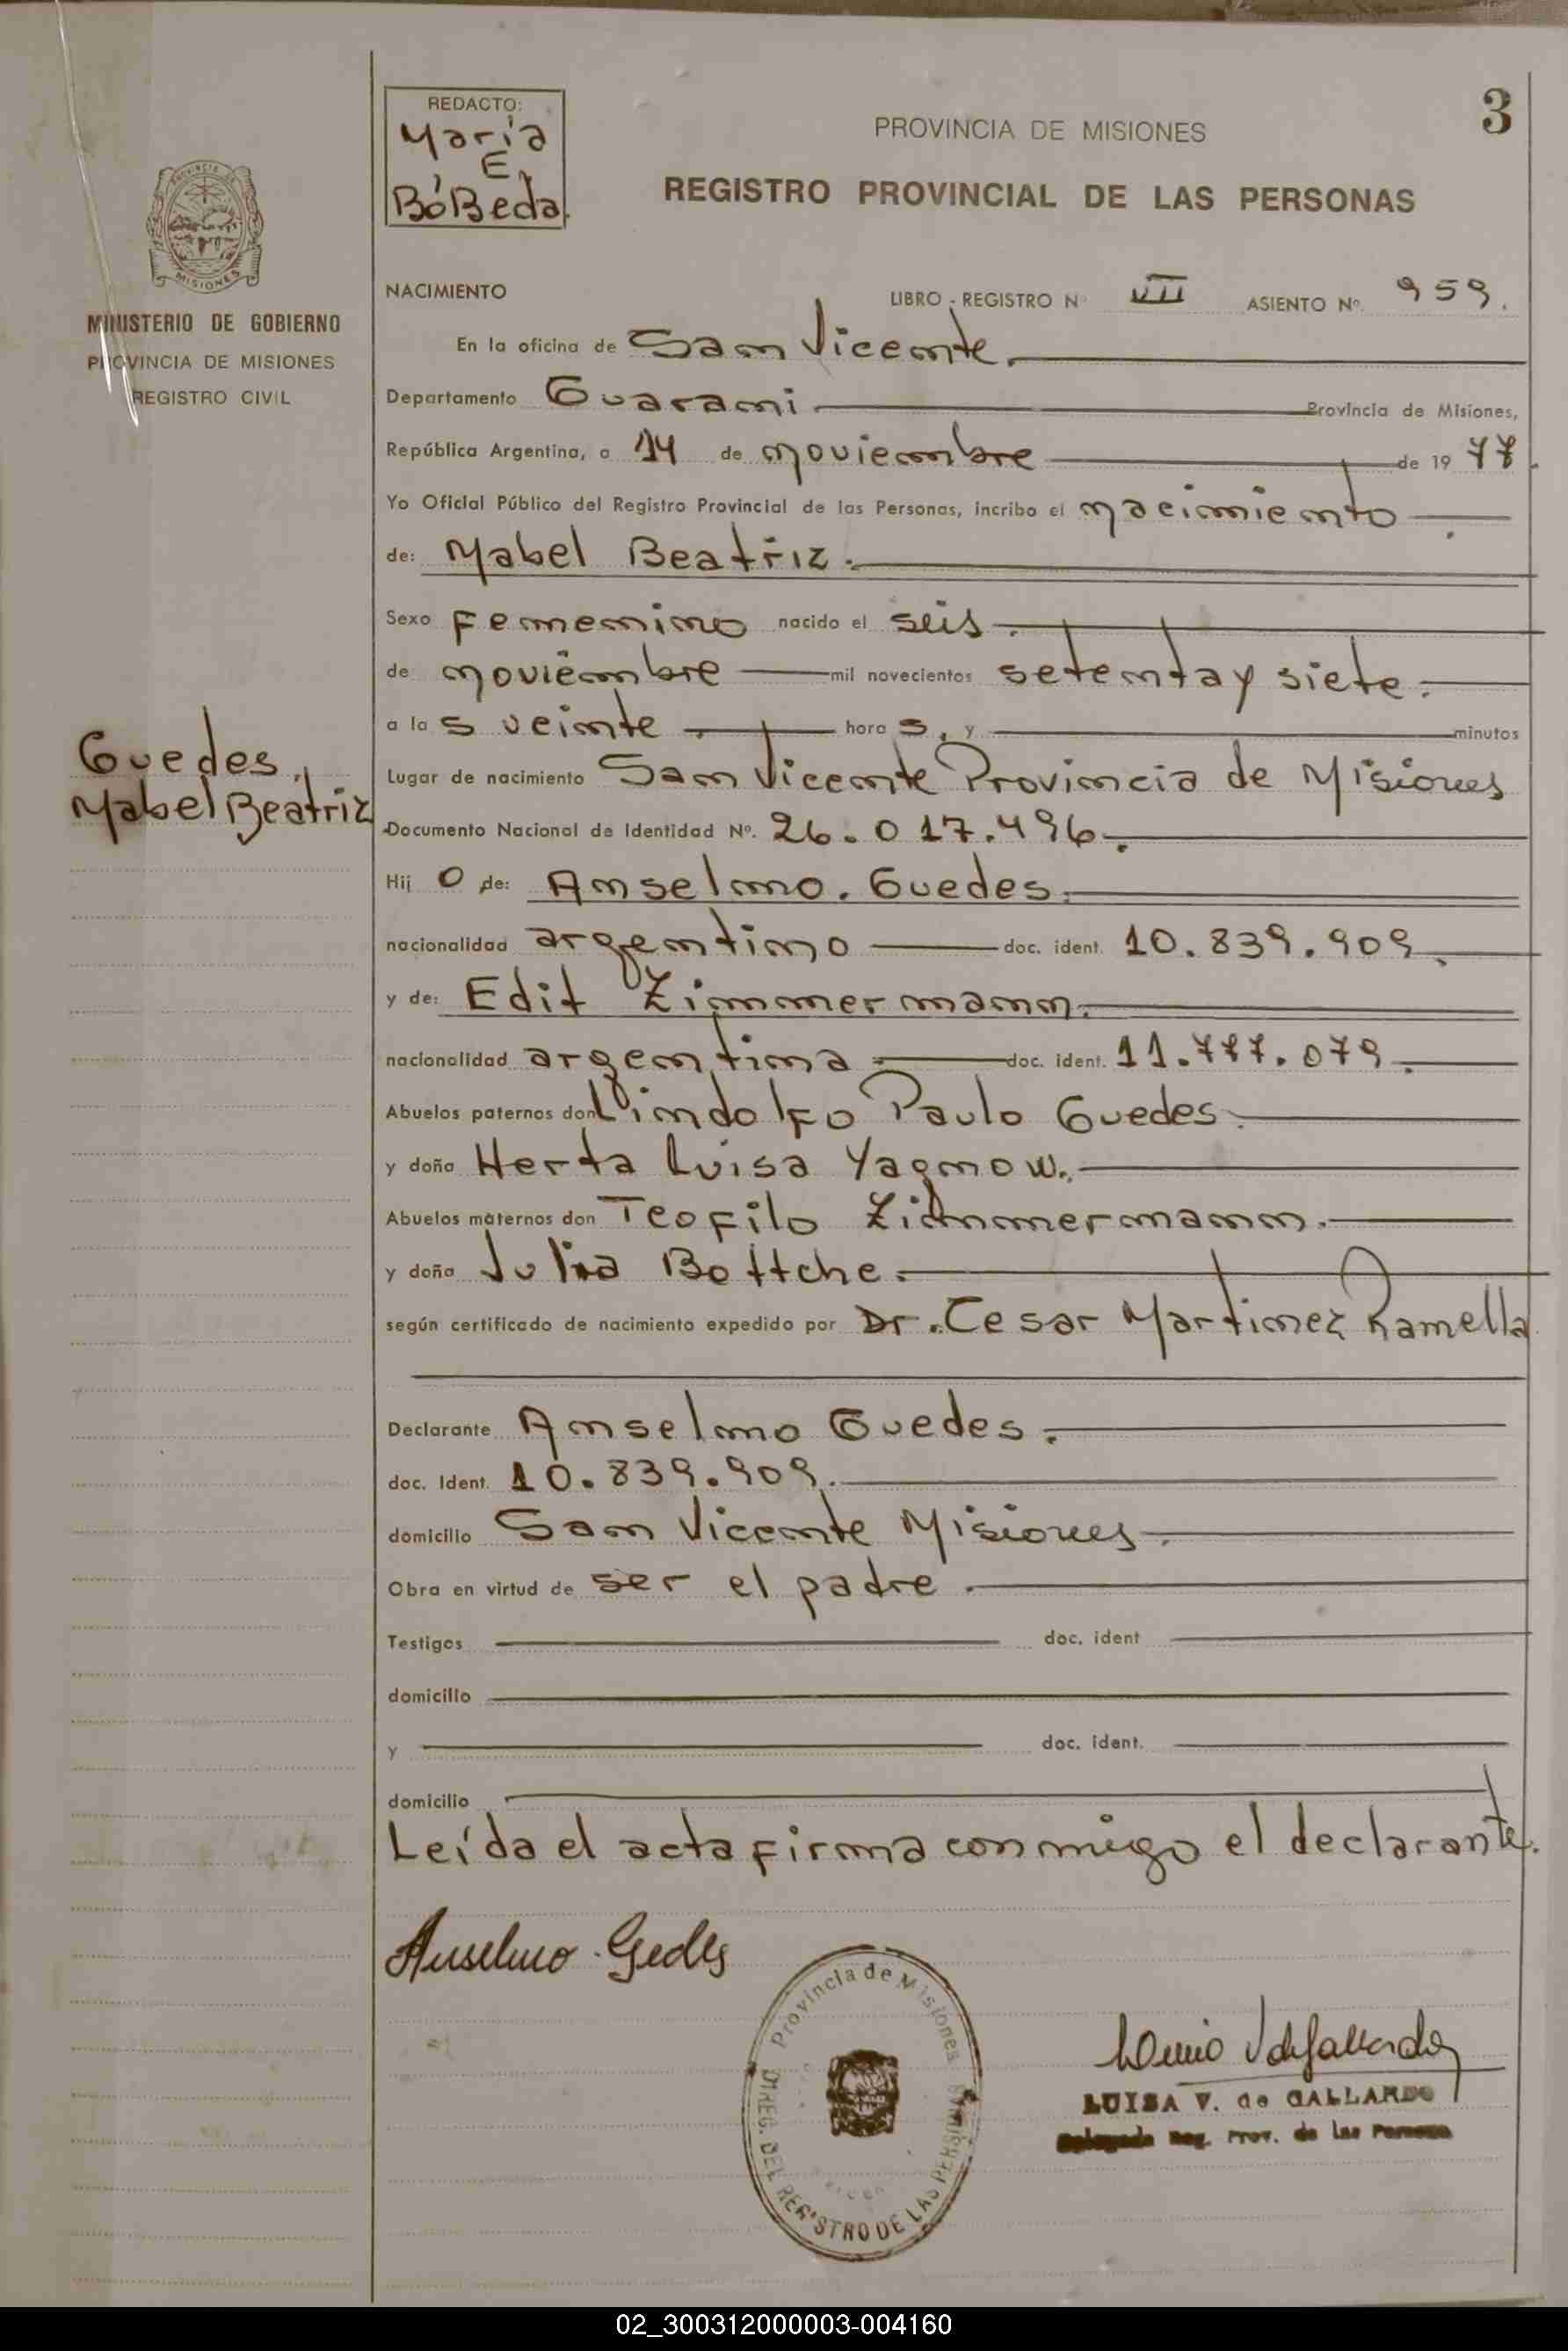 3
REDACTO:
Maria
E.
BóBeda.
PROVINCIA DE MISIONES
REGISTRO PROVINCIAL DE LAS PERSONAS
PROVINCIA DE
MISIONES
MINISTERIO DE GOBIERNO
PROVINCIA DE MISIONES
REGISTRO CIVIL
NACIMIENTO LIBRO - REGISTRO Nº VII ASIENTO Nº. 959.
En la oficina de San Vicente.
Departamento Guarani Provincia de Misiones,
República Argentina, a 14 de noviembre de 19 77.
Yo Oficial Público del Registro Provincial de las Personas, incribo el nacimiento.
de: Mabel Beatriz.
Sexo Femenino nacido el seis.
de noviembre mil novecientos setenta y siete.
a la s veinte. hora s. y minutos
Guedes,
Mabel Beatriz
Lugar de nacimiento San Vicente Provincia de Misiones
Documento Nacional de Identidad Nº. 26.017.496.
Hij o de: Anselmo. Guedes.
nacionalidad argentino doc. ident. 10.839.909.
y de: Edit Zimmermann.
nacionalidad argentina doc. ident. 11.777.079.
Abuelos paternos don Lindolfo Paulo Guedes.
y doña Herta Luisa Yagnow.
Abuelos maternos don Teofilo Zimmermann.
y doña Julia Bottche.
según certificado de nacimiento expedido por Dr. Cesar Martinez Ramella
Declarante Anselmo Guedes.
doc. Ident. 10.839.909.
domicilio San Vicente Misiones.
Obra en virtud de ser el padre.
Testigos doc. ident
domicilio
y doc. ident.
domicilio
Leída el acta firma conmigo el declarante.
Anselmo Gedes
Provincia de Misiones
DIREG. DEL REGISTRO DE LAS PERSONAS
LUISA V. de GALLARDO
Delegada Reg. Prov. de las Personas
02_300312000003-004160